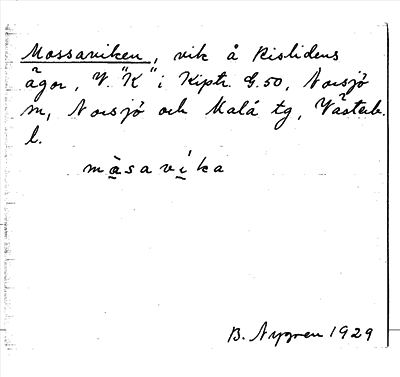 Mossaviken, vik å Risliden
ägor, V. "K" i Kiptr. G. 50, Norsjö
sn, Norsjö och Malå tg, Västerb.
l.
måsavíka
B. Nygren 1929